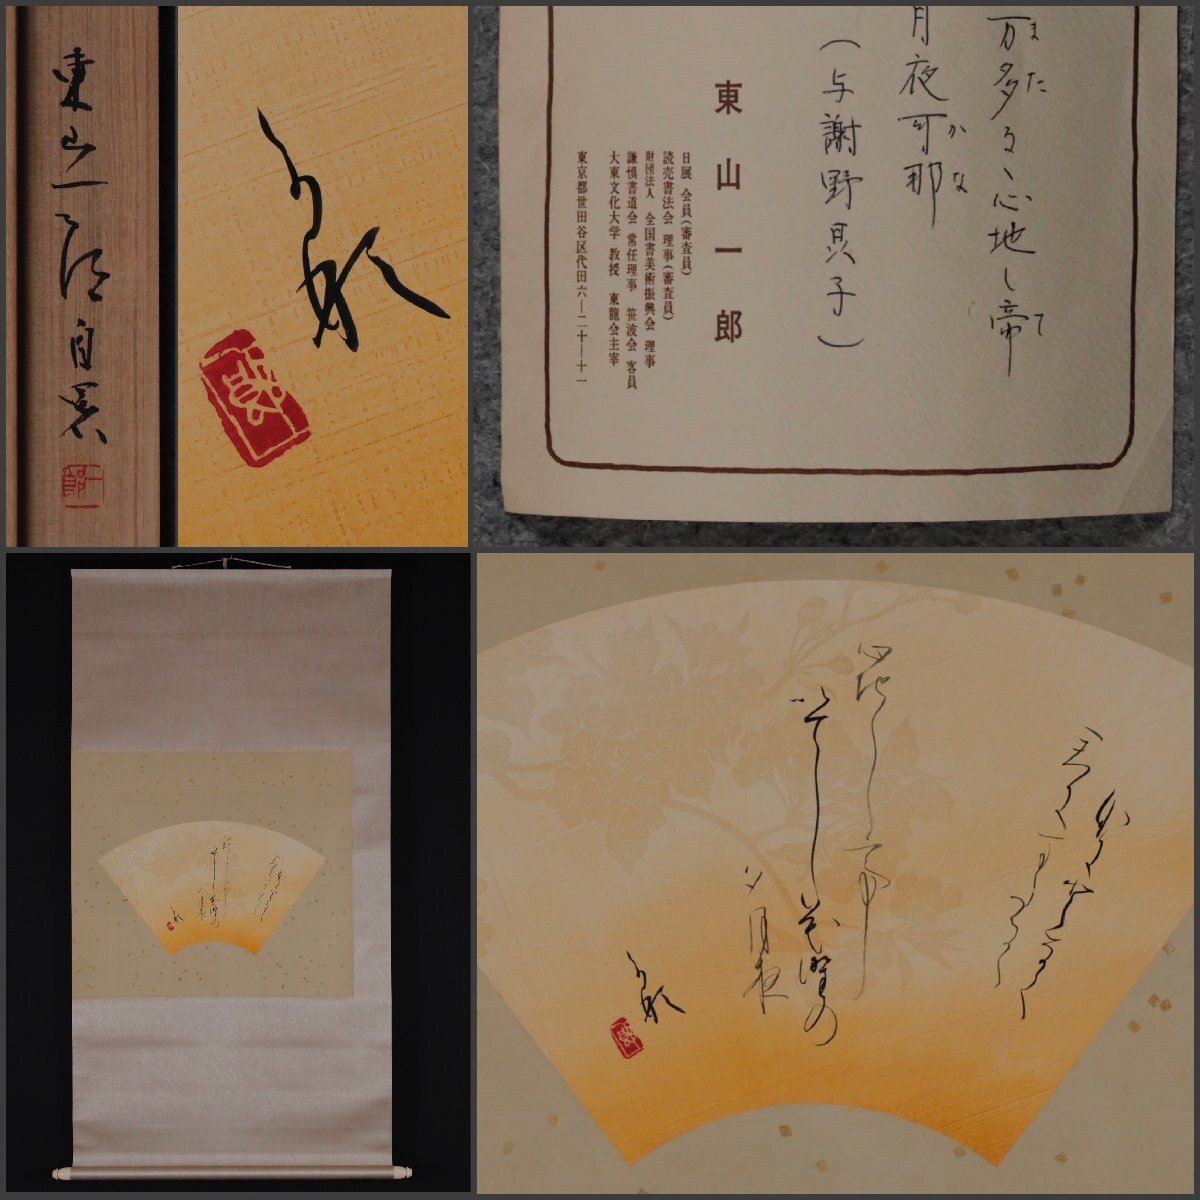 東山一郎自署
一郎
可那
万多る〻心地し帝
また
て
月夜可那
かな
(与謝野晶子)
東山一郎
日展 会員(審査員)
読売書法会 理事(審査員)
財団法人 全国書美術振興会 理事
謙慎書道会 常任理事 笹波会 客員
大東文化大学 教授 東龍会主宰
東京都世田谷区代田六―二十―十一
心地し帝
いでし花野の
夕月夜
可那